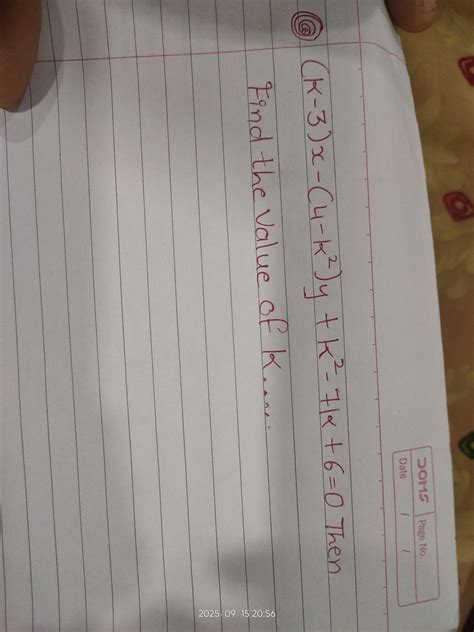 DOMS
Page No.
Date / /
@ (k-3)x-(4-k²)y+k²-7k+6=0 Then
Find the value of k.....
2025. 09. 15 20:56